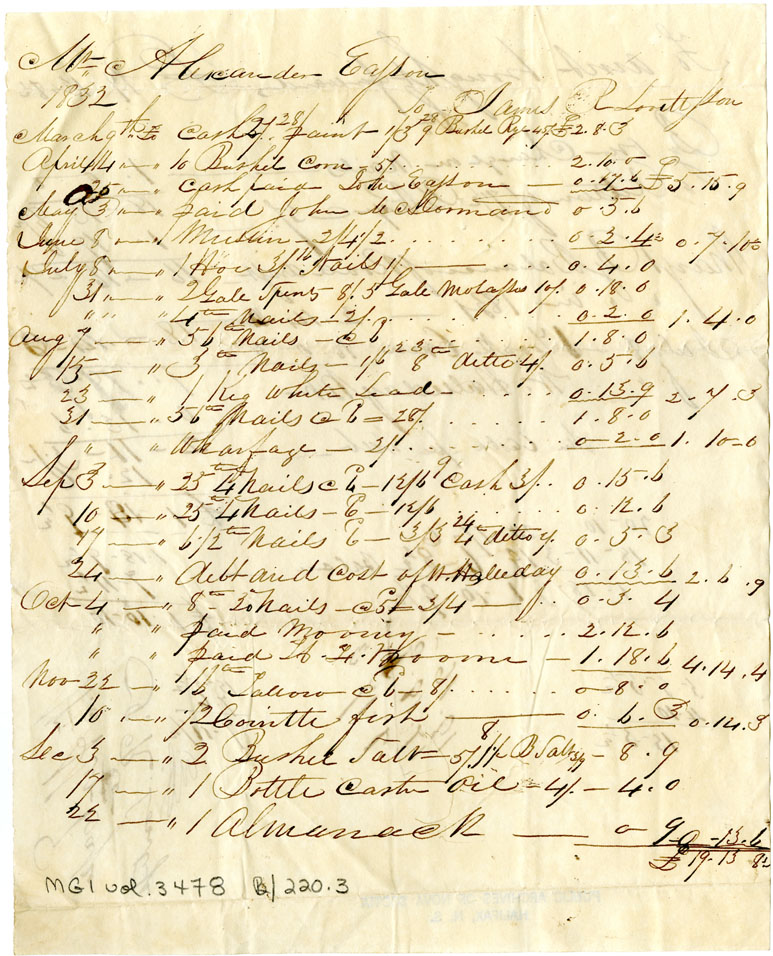 Mr Alexander Easson
1832 To James R Lovettson
March 9th To Cash 2/ 28/ paint 1/3 29 Bushel Rye 4/ £2.8.3
April 14 — " 10 Bushel Corn – 5/ 2.10.0
25 — " Cash paid John Easson — 0.17.6 £5.15.9
May 3 — " paid John McNormand 0.5.6
June 8 — " Muslin – 2/4½ 0.2.4½ 0.7.10½
July 8 — " 1 Hoe 3/ Nails 1/ — 0.4.0
31 — " 2 Gals Spirits 8/ 3 Gals Molasses 10/. 0.18.0
" " " 4 lb Nails – 2/. 0.2.0 1.4.0
Aug 7 — " 56 lb Nails – 1.8.0
15 — " 3 lb Nails – 1/6 23 8 lb ditto 4/. 0.5.6
23 — " 1 Keg White Lead – 0.13.9 2.7.3
31 — " 56 lb Nails – 28/. 1.8.0
" " Wharfage – 2/. 0-2.0 1.10-0
Sep 3 — " 25 lb Nails – 12/6 9 Cash 3/. 0.15.6
10 — " 25 lb Nails – 12/6 0.12.6
17 — " 6½ lb Nails – 3/3 24 4 lb ditto 0.5.3
24 — " debt and cost of Halleday 0.13.6 2.6.9
Oct 4 — " 8 lb Nails – 3/4 — 0.3.4
" " paid Mooney – 2.12.6
" " paid – 1.18.6 4.14.4
Nov 22 — " 16 lb Tallow – 8/. 0-8.0
10 — " 1/2 Quintle fish — 0.6.3 0.14.3
Dec 3 — " 2 Bushel Salt – 5/ 8 B Salt 3/9 – 8.9
17 — " 1 Bottle Castor Oil = 4/. – 4.0
22 — " 1 Almanack — 0 9 0-13.6
£19.13 8½
MG1 vol. 3478 B/220.3
PUBLIC ARCHIVES OF NOVA SCOTIA
HALIFAX, N. S.